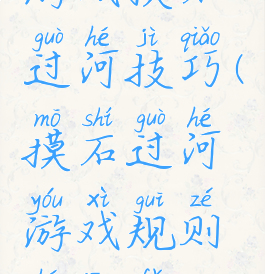 guò hé jì qiǎo
过河技巧(
mō shí guò hé
摸石过河
yóu xì guī zé
游戏规则